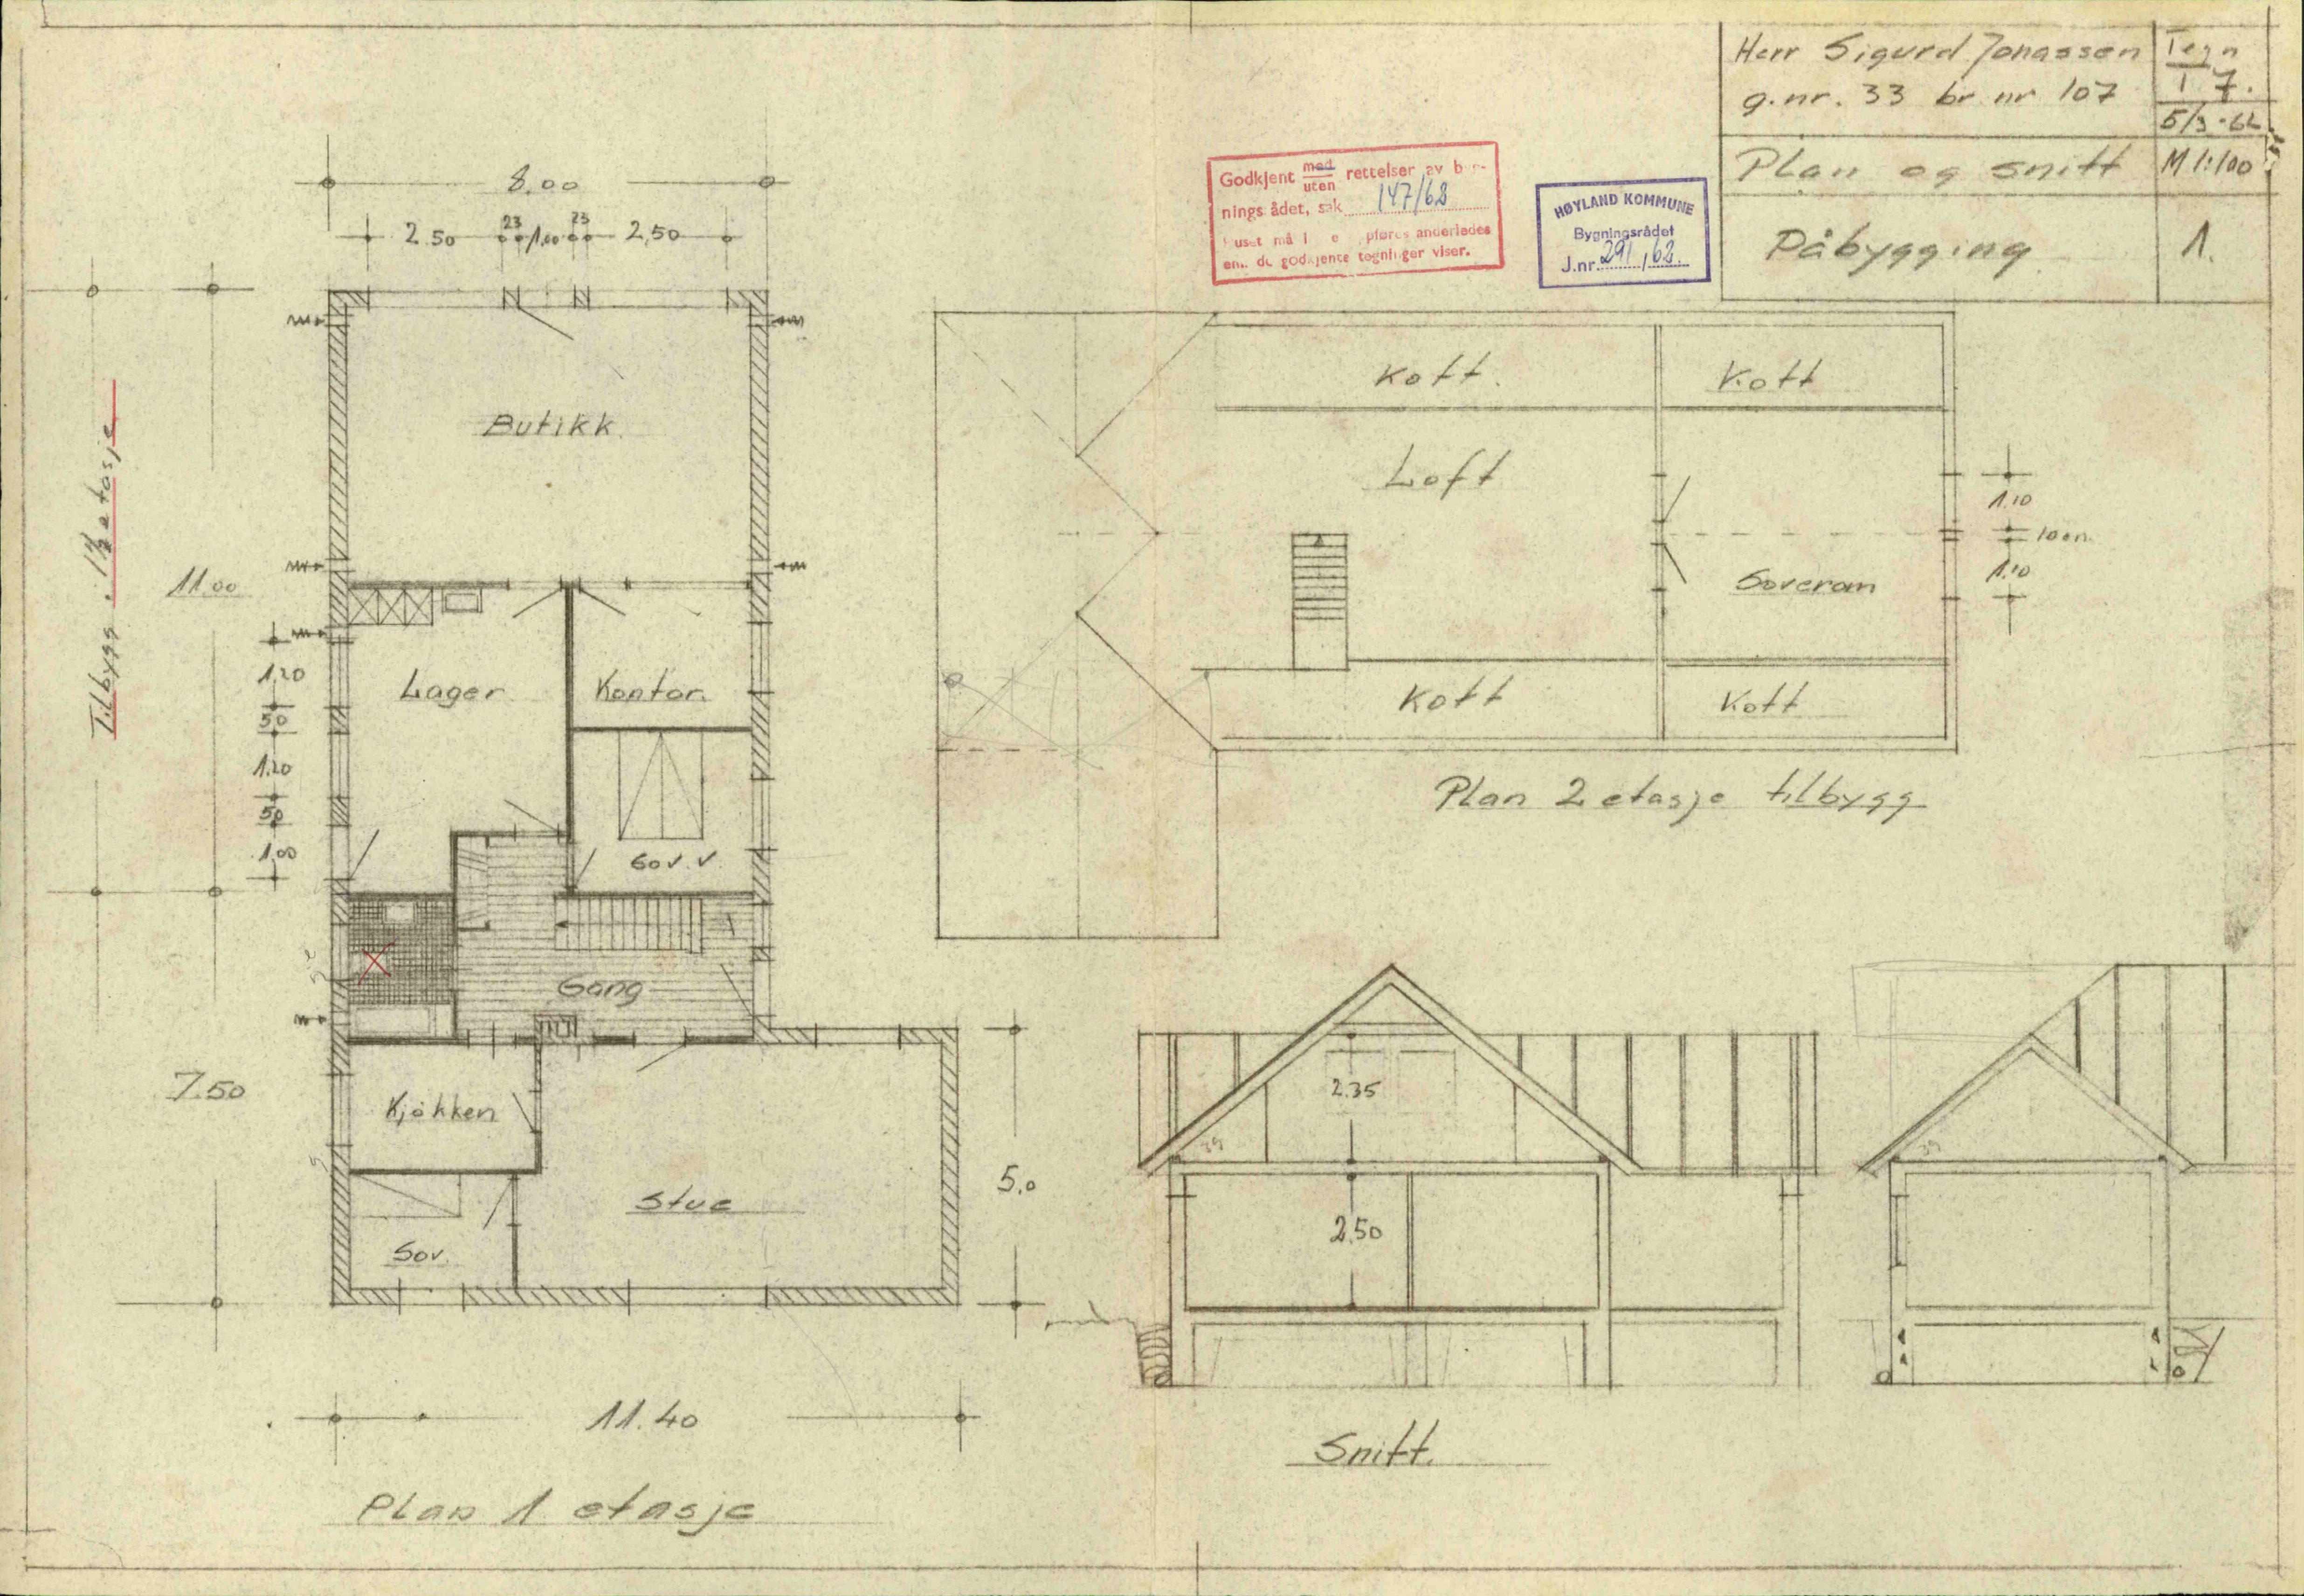 Herr Sigurd Jonassen
g.nr. 33 br nr 107
Tegn
I 7.
5/3-62
Plan og snitt
M 1:100
Påbygging
1.
Godkjent med rettelser av
uten
nings ådet, sak 147/62
må pføres anderledes
godkjente tegninger viser.
HØYLAND KOMMUNE
Bygningsrådet
J.nr. 291/62.
8.00
2.50 23 1.00 23 2,50
Tilbygg i 1½ etasje
11.00
1,20
50
1.20
50
1.00
7.50
Butikk.
Lager
Kontor
Sov. V.
Gang
Kjøkken
Stue
Sov.
5.0
11.40
Plan 1 etasje
Kott.
Kott
Loft
Soverom
Kott
Kott
1.10
10 cm.
1.10
Plan 2 etasje tilbygg
2.35
39
2.50
39
Snitt.